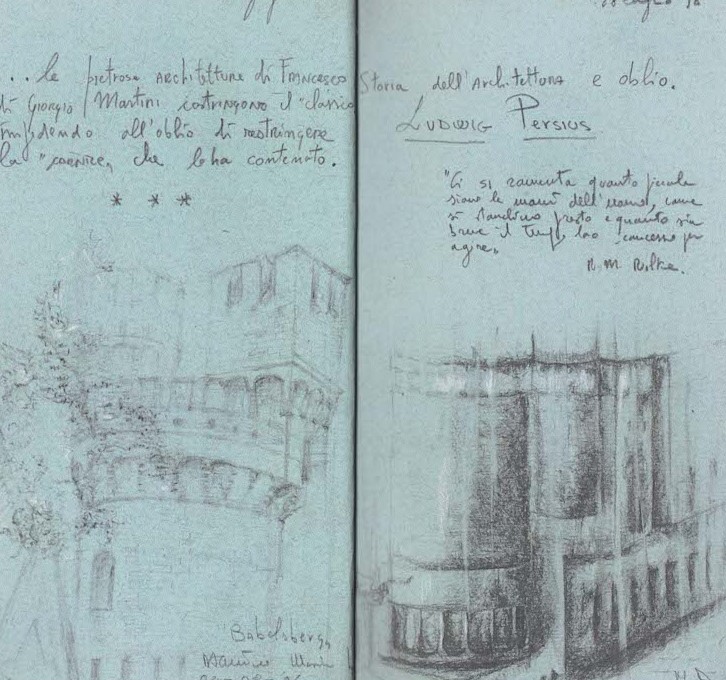 ...le pietrose ARCHITETTURE di FRANCESCO
di GIORGIO MARTINI costringono il "classico
all'oblio di restringere
la "cornice" che lo ha contenuto.
* * *
Babelsberg,
Storia dell'ARCHITETTURA e oblio.
LUDWIG PERSIUS
"Ci si rammenta quanto piccole
siano le mani dell'uomo, come
si stanchino presto e quanto sia
breve il tempo loro concesso per
agire"
R. M. Rilke.